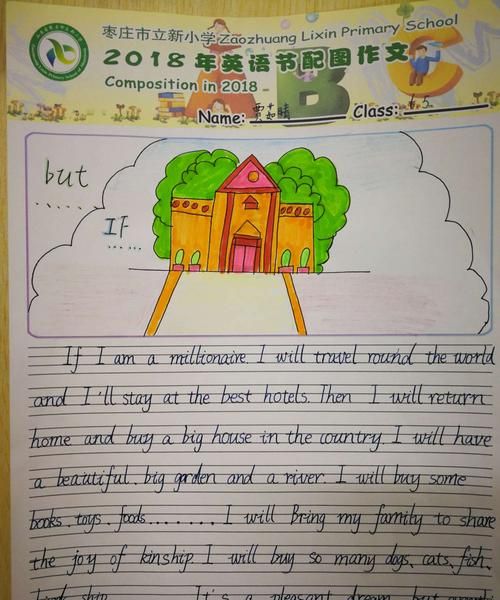 枣庄市立新小学 Zaozhuang Lixin Primary School
2018年英语节配图作文
Composition in 2018
Name: Class:
A B C
but
IF
If I am a millionaire. I will travel round the world
and I'll stay at the best hotels. Then I will return
home and buy a big house in the country. I will have
a beautiful. big garden and a river. I will buy some
books. toys. foods........ I will Bring my family to share
the joy of kinship. I will buy so many dogs, cats, fish,
It's a pleasant dream, but